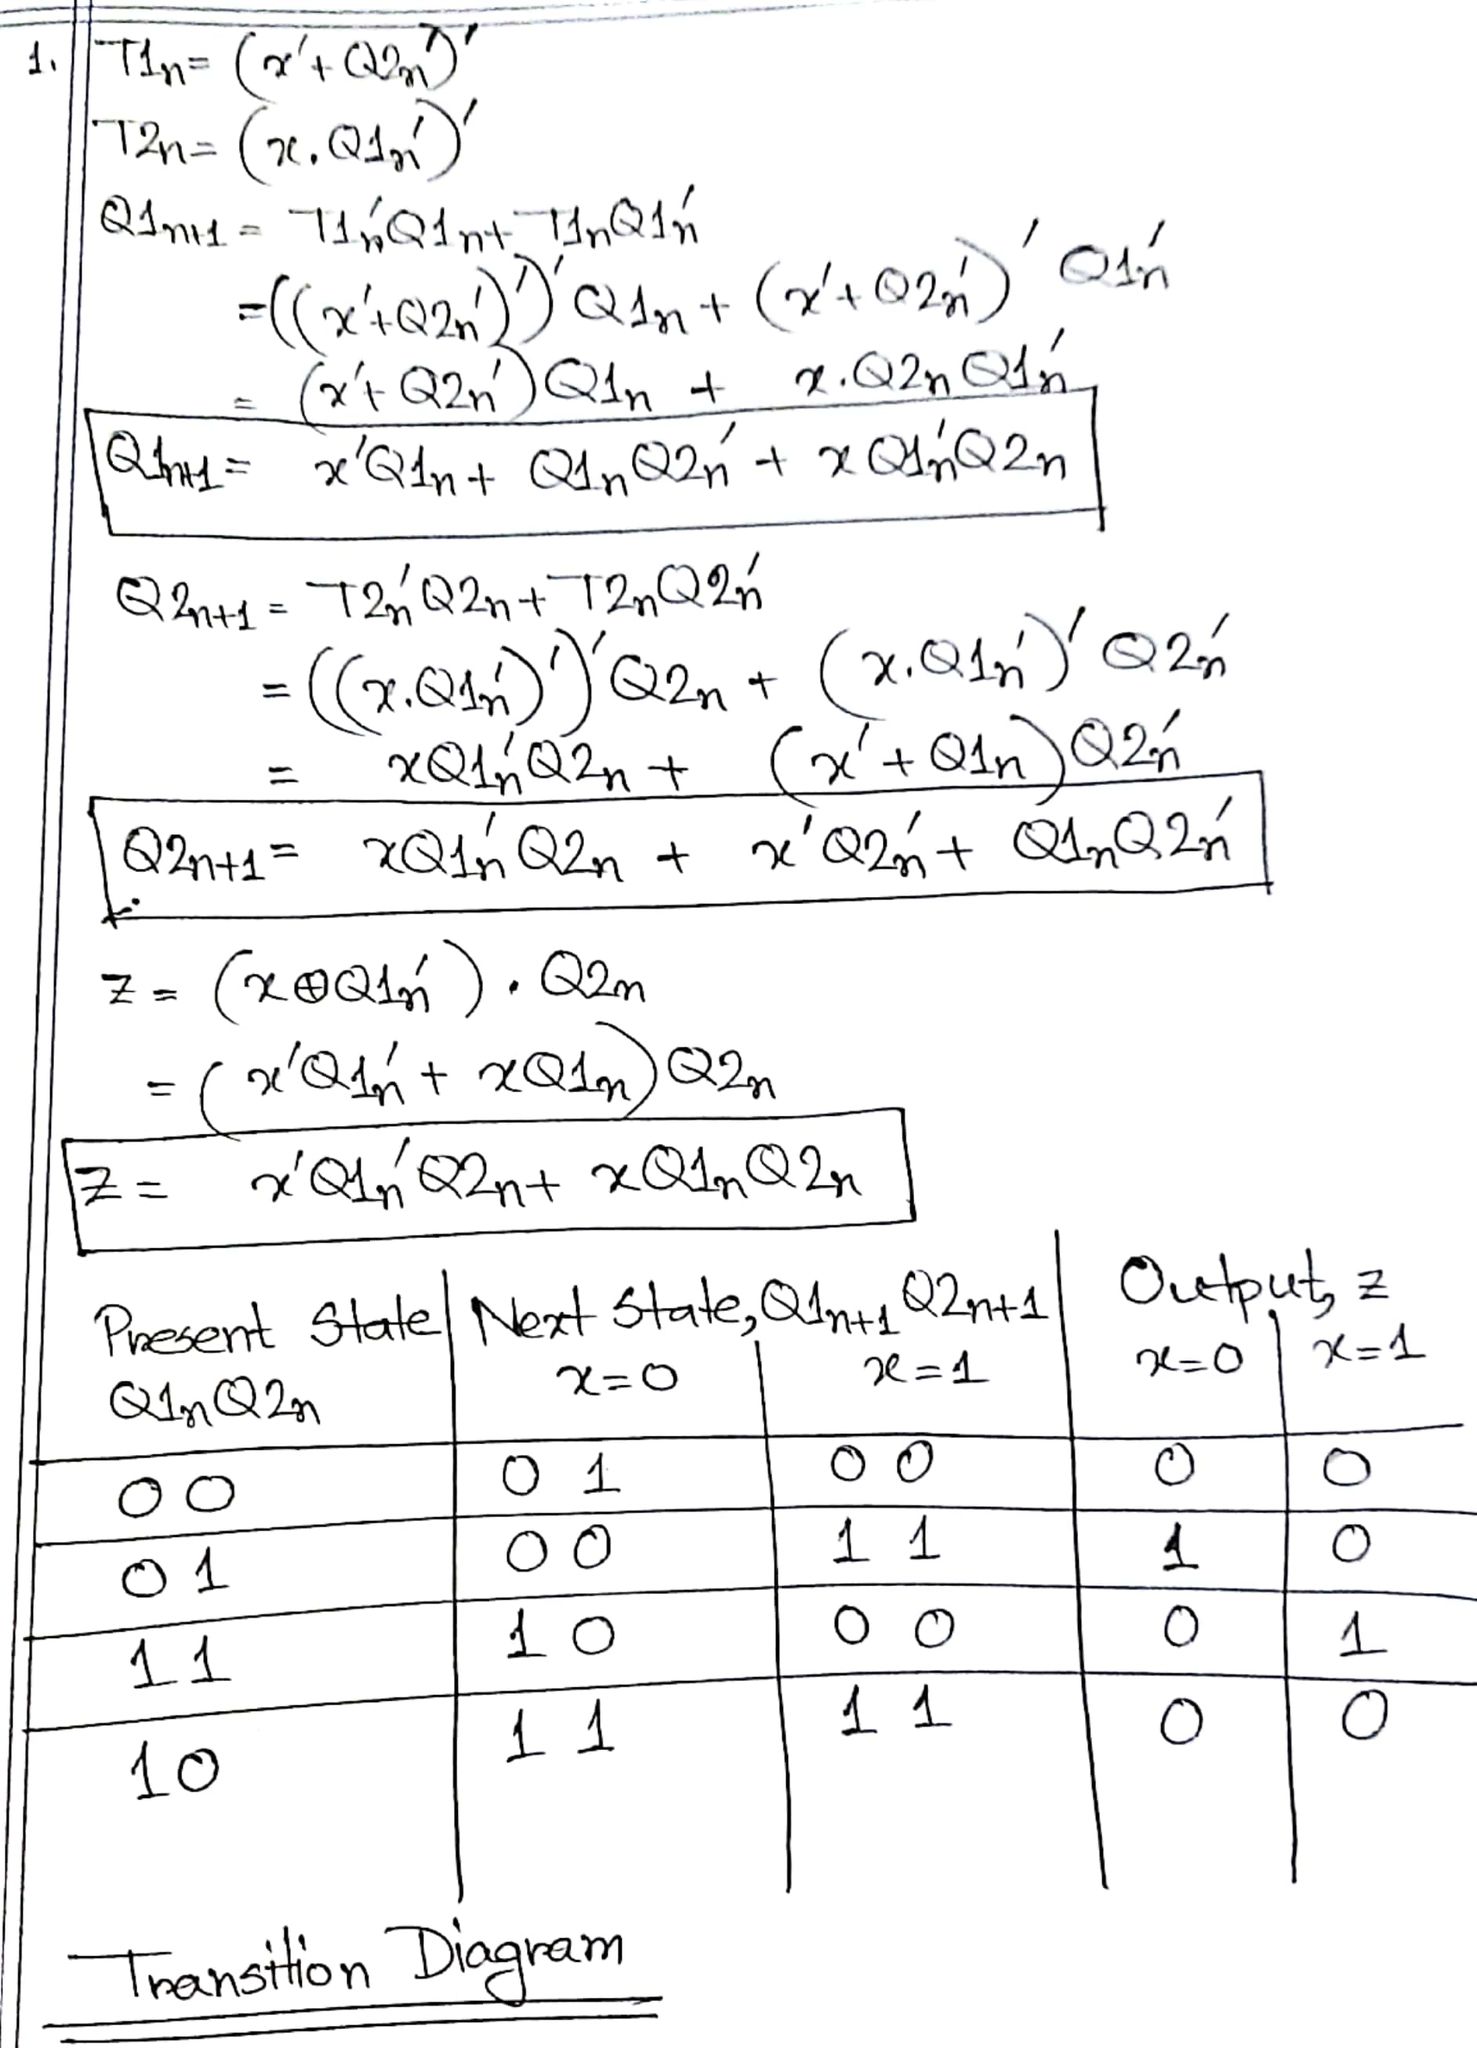 1. T1n = (x' + Q2n')'
T2n = (x.Q1n')'
Q1n+1 = T1n'Q1n + T1nQ1n'
= ((x' + Q2n')')' Q1n + (x' + Q2n')' Q1n'
= (x' + Q2n')Q1n + x.Q2nQ1n'
Q1n+1 = x'Q1n + Q1nQ2n' + xQ1n'Q2n
Q2n+1 = T2n'Q2n + T2nQ2n'
= ((x.Q1n')')' Q2n + (x.Q1n')' Q2n'
= xQ1n'Q2n + (x' + Q1n)Q2n'
Q2n+1 = xQ1n'Q2n + x'Q2n' + Q1nQ2n'
z = (x⊕Q1n') . Q2n
= (x'Q1n' + xQ1n)Q2n
z = x'Q1n'Q2n + xQ1nQ2n
Present State Next State, Q1n+1 Q2n+1 Output, z
Q1nQ2n x=0 x=1 x=0 x=1
00 01 00 0 0
01 00 11 1 0
11 10 00 0 1
10 11 11 0 0
Transition Diagram